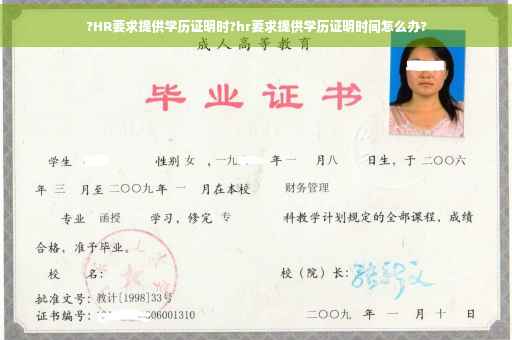 ?HR要求提供学历证明时?hr要求提供学历证明时间怎么办?
成人高等教育
毕业证书
学生 性别 女 ,一九 年一 月八 日生,于二〇〇六
年 三 月至二〇〇九年 一 月在本校 财务管理
专业 函授 学习,修完 专 科教学计划规定的全部课程,成绩
合格,准予毕业。
校 名: 校(院)长:
批准文号:教计[1998]33号
证书编号: 06001310 二〇〇九 年 一 月 十 日